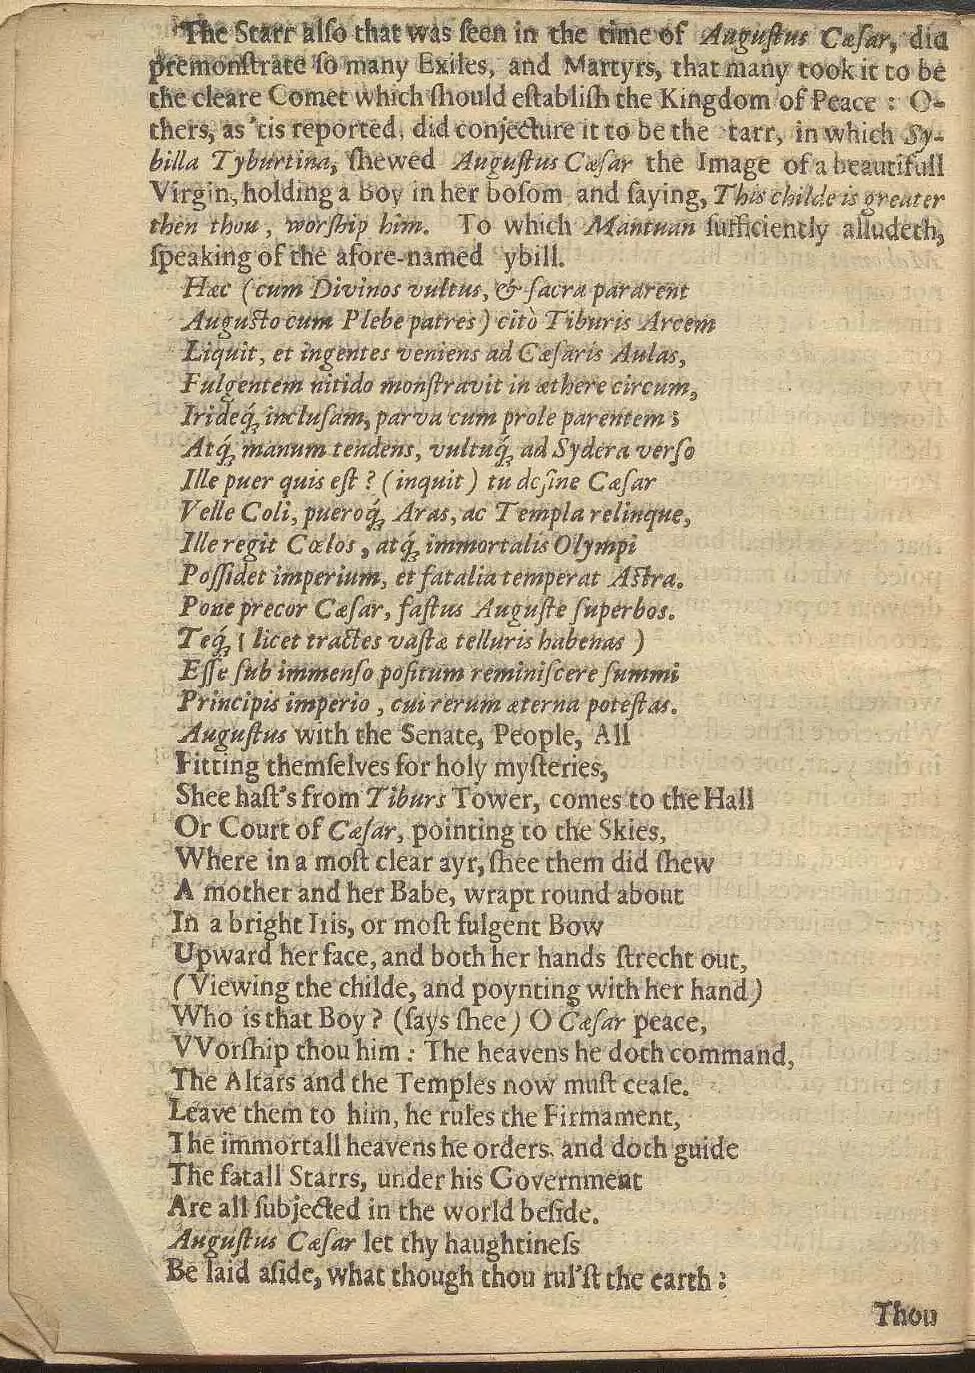 The Starr alſo that was ſeen in the time of Auguſtus Cæſar, did
premonſtrate ſo many Exiles, and Martyrs, that many took it to be
the cleare Comet which ſhould eſtabliſh the Kingdom of Peace : O-
thers, as 'tis reported, did conjecture it to be the tarr, in which Sy-
billa Tyburtina, ſhewed Auguſtus Cæſar the Image of a beautifull
Virgin, holding a boy in her boſom and ſaying, This childe is greater
then thou, worſhip him. To which Mantuan ſufficiently alludeth,
ſpeaking of the afore-named ybill.
Hæc (cum Divinos vultus, & ſacra pararent
Auguſto cum Plebe patres) citò Tiburis Arcem
Liquit, et ingentes veniens ad Cæſaris Aulas,
Fulgentem nitido monſtravit in æthere circum,
Irideq́; incluſam, parva cum prole parentem ;
Atq́; manum tendens, vultuq́; ad Sydera verſo
Ille puer quis eſt ? (inquit) tu deſine Cæſar
Velle Coli, pueroq́; Aras, ac Templa relinque,
Ille regit Cœlos, atq́; immortalis Olympi
Poſſidet imperium, et fatalia temperat Aſtra.
Pone precor Cæſar, faſtus Auguſte ſuperbos.
Teq́; ( licet tractes vaſtæ telluris habenas )
Eſſe ſub immenſo poſitum reminiſcere ſummi
Principis imperio, cui rerum æterna poteſtas.
Auguſtus with the Senate, People, All
Fitting themſelves for holy myſteries,
Shee haſt's from Tiburs Tower, comes to the Hall
Or Court of Cæſar, pointing to the Skies,
Where in a moſt clear ayr, ſhee them did ſhew
A mother and her Babe, wrapt round about
In a bright Iris, or moſt fulgent Bow
Upward her face, and both her hands ſtrecht out,
(Viewing the childe, and poynting with her hand)
Who is that Boy ? (ſays ſhee) O Cæſar peace,
VVorſhip thou him : The heavens he doth command,
The Altars and the Temples now muſt ceaſe.
Leave them to him, he rules the Firmament,
The immortall heavens he orders, and doth guide
The fatall Starrs, under his Government
Are all ſubjected in the world beſide.
Auguſtus Cæſar let thy haughtineſs
Be laid aſide, what though thou rul'ſt the earth :
Thou